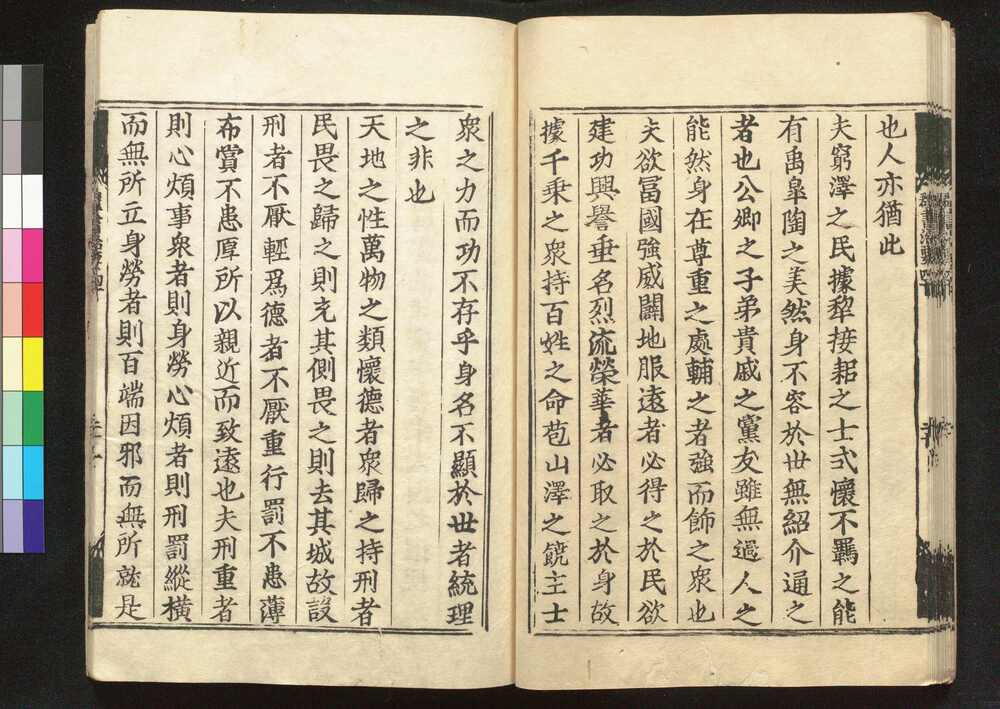 也人亦猶此
夫窮澤之民據犂接耜之士或懷不羈之能
有禹皐陶之美然身不容於世無紹介通之
者也公卿之子弟貴戚之黨友雖無過人之
能然身在尊重之處輔之者強而飾之衆也
夫欲冨國強威闢地服遠者必得之於民欲
建功興譽垂名烈流榮華者必取之於身故
據千乗之衆持百姓之命苞山澤之饒主士
衆之力而功不存乎身名不顯於世者統理
之非也
天地之性萬物之類懷德者衆歸之持刑者
民畏之歸之則充其側畏之則去其城故設
刑者不厭輕爲德者不厭重行罰不患薄
布賞不患厚所以親近而致遠也夫刑重者
則心煩事衆者則身勞心煩者則刑罰縱横
而無所立身勞者則百端因邪而無所就是